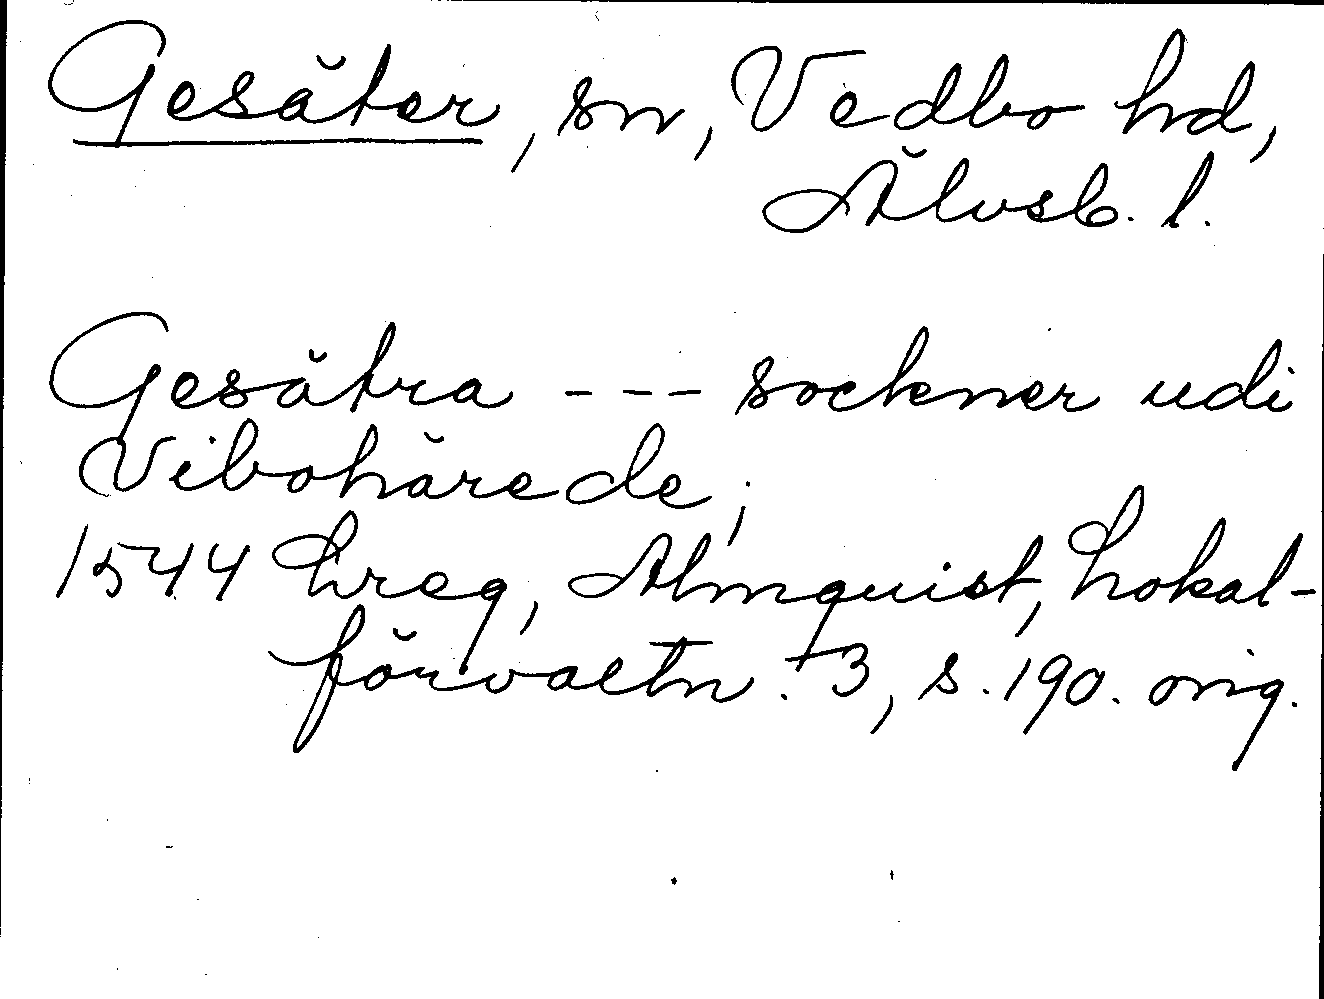 Gesäter, sn, Vedbo hd,
Älvsb. l.
Gesätra --- sockner udi
Vibohärede,;
1544 Lreg, Almquist, Lokal-
förvaltn. 3, s. 190. orig.